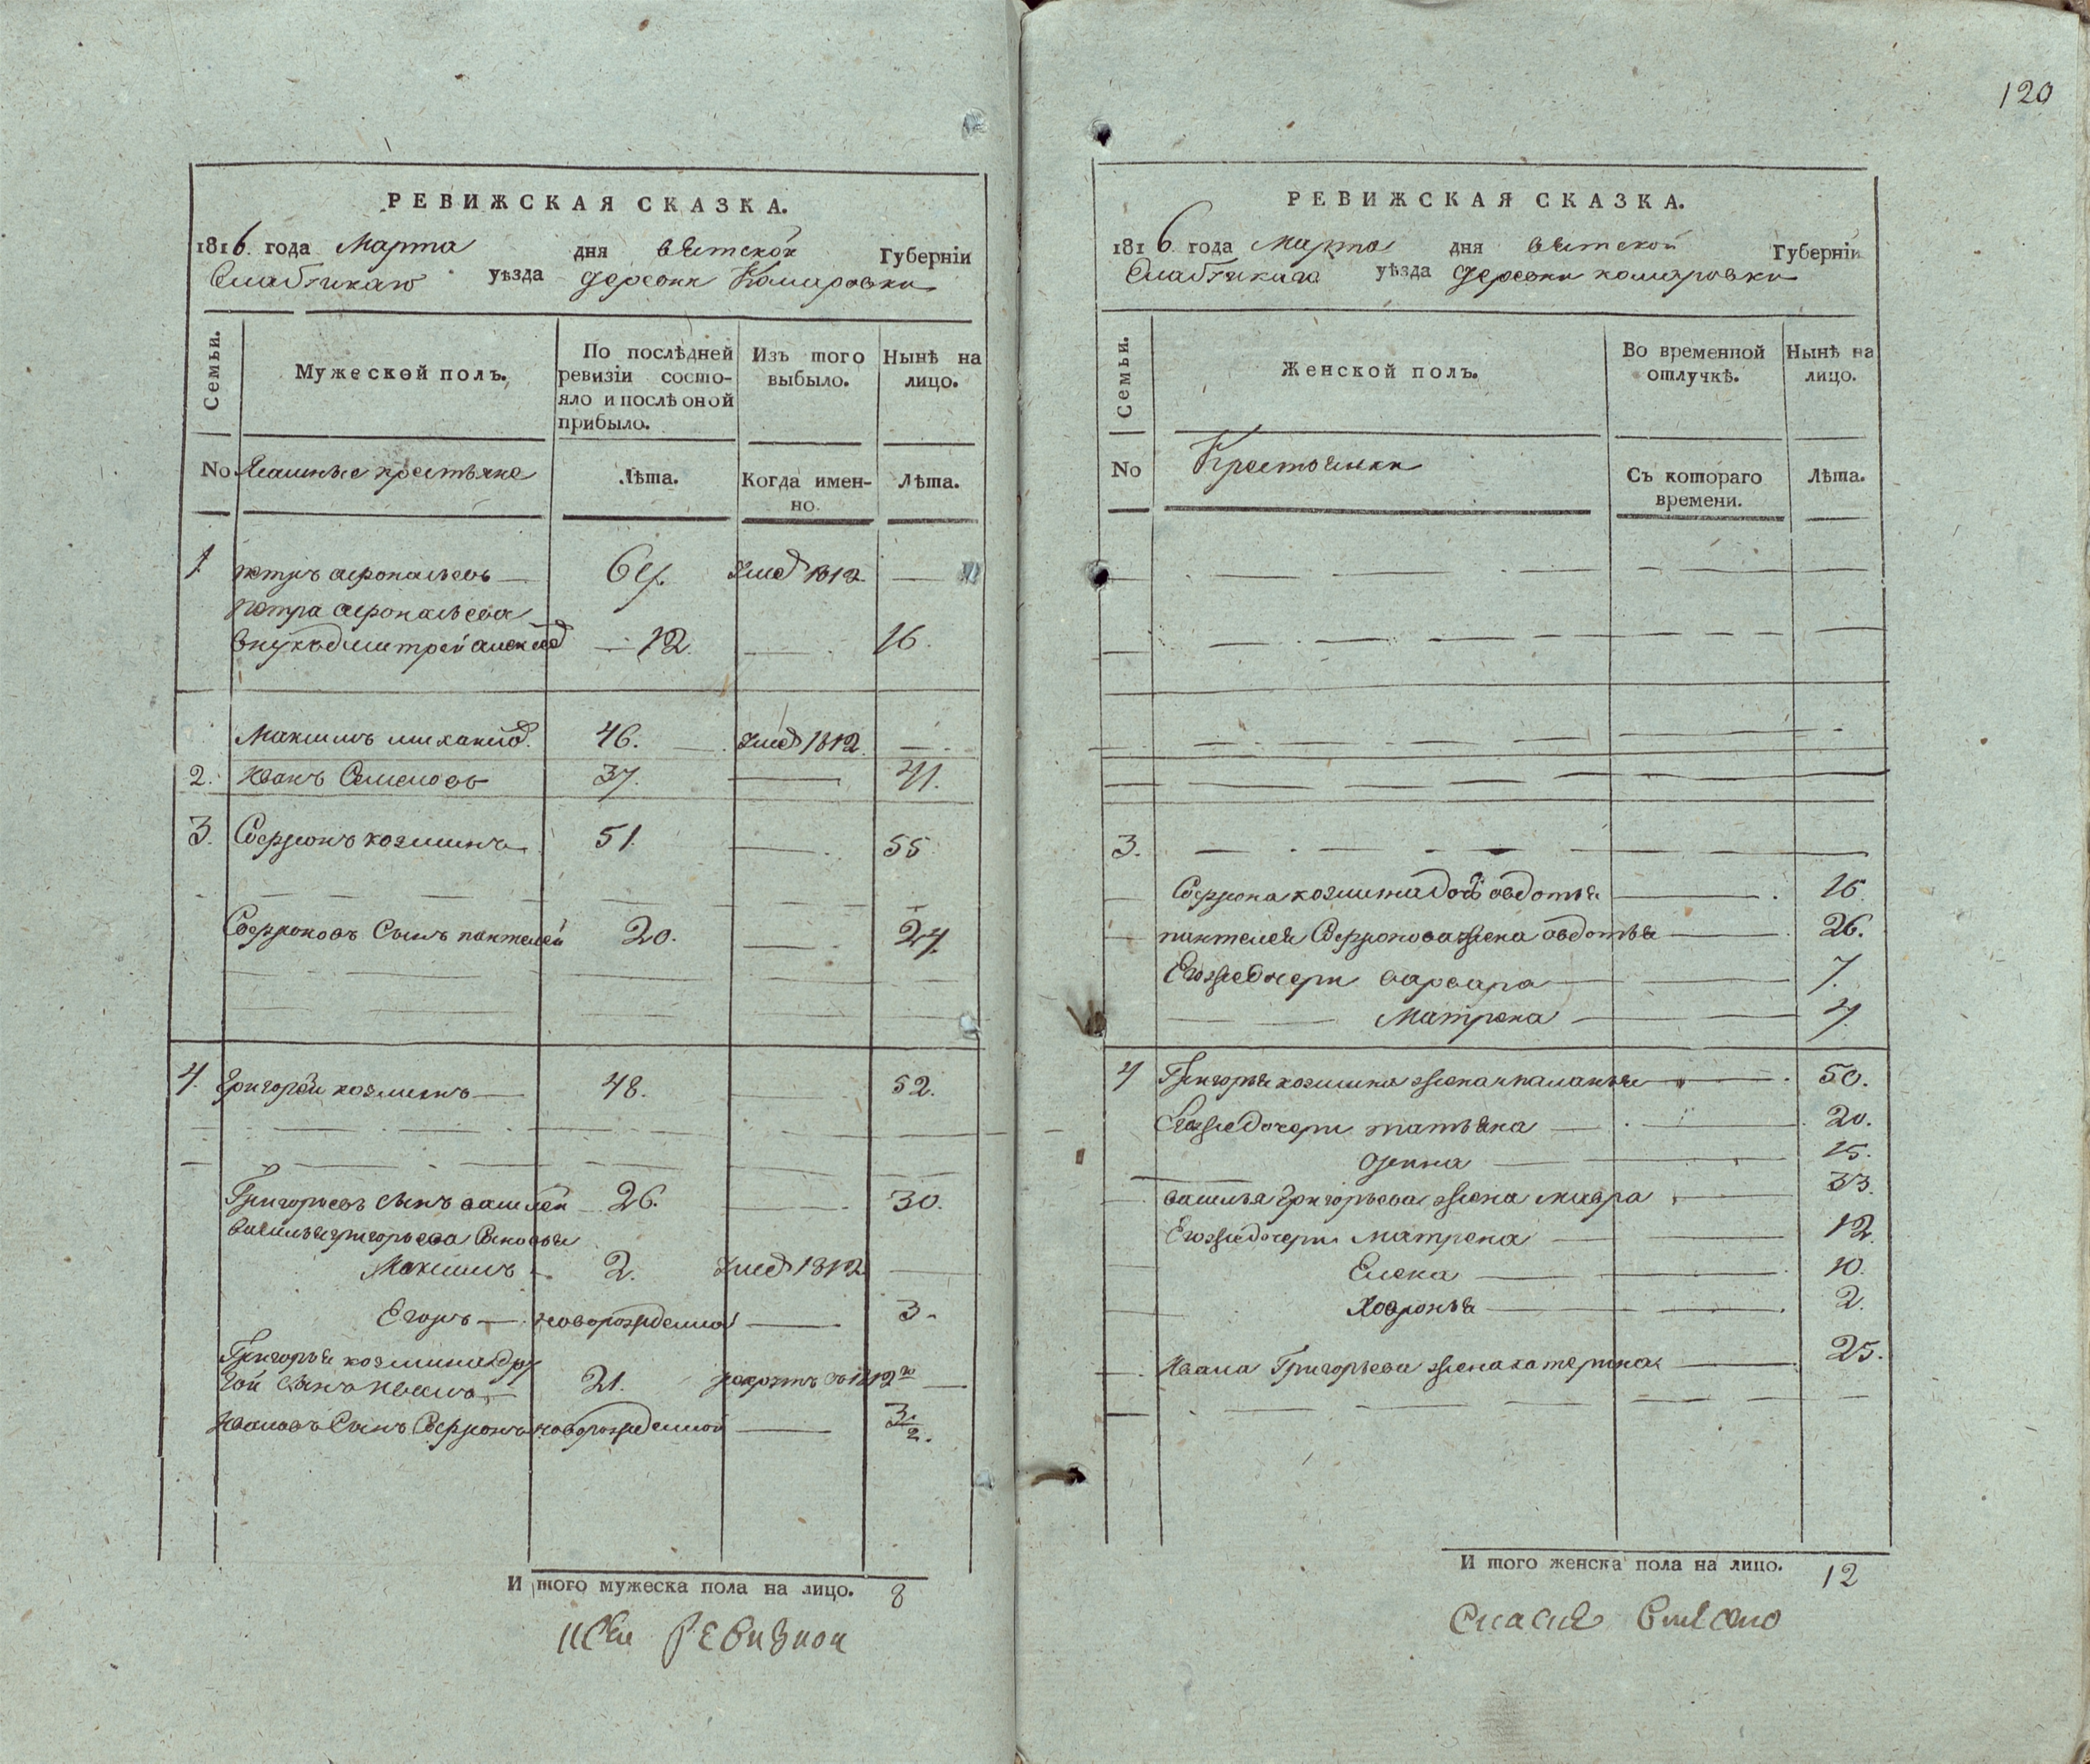 120
РЕВИЖСКАЯ СКАЗКА.
1816. года Марта дня вятской Губерніи
Елабужскаго уѣзда деревни Комаровки
Семьи.
Мужеской полъ.
По послѣдней ревизіи состо-
яло и послѣ оной
прибыло.
Изъ того
выбыло.
Нынѣ на
лицо.
No Ясашные крестьяне
Лѣта.
Когда имен-
но.
Лѣта.
1 петръ афонасьевъ 64. умеръ 1812
петра афонасьева
внукъ дмитрей алексеевъ 12. 16.
Максимъ михайловъ. 46. умеръ 1812
2. Иванъ Семеновъ 37. 41.
3. Софронъ козминъ 51. 55
Софроновъ Сынъ пантелей 20. 24.
4. Григорей козминъ 48. 52.
Григорьевъ сынъ василей 26. 30.
василья григорьева Сыновья
Максимъ 2. умеръ 1812
Егоръ новорожденной 3.
Григорья козмина дру
гой сынъ Иванъ 21. рекрутъ въ 1812м
Ивановъ Сынъ Софронъ новорожденной 3 1/2.
И того мужеска пола на лицо. 8
РЕВИЖСКАЯ СКАЗКА.
1816 года Марта дня вятской Губерніи
Елабужскаго уѣзда деревни комаровки
Семьи.
Женской полъ.
Во временной
отлучкѣ.
Нынѣ на
лицо.
No Крестьянки
Съ котораго
времени.
Лѣта.
3.
Софрона козмина дочь овдотья 16.
пантелея Софронова жена овдотья 26.
Егожъ дочери варвара 7.
Матрена 4.
4 Григорья козмина жена маланья 50.
Егожъ дочери татьяна 20.
15.
василья Григорьева жена мавра 33.
Егожъ дочери матрена 12.
Елена 10.
Ховронья 2.
Ивана Григорьева жена катерина 25.
И того женска пола на лицо. 12